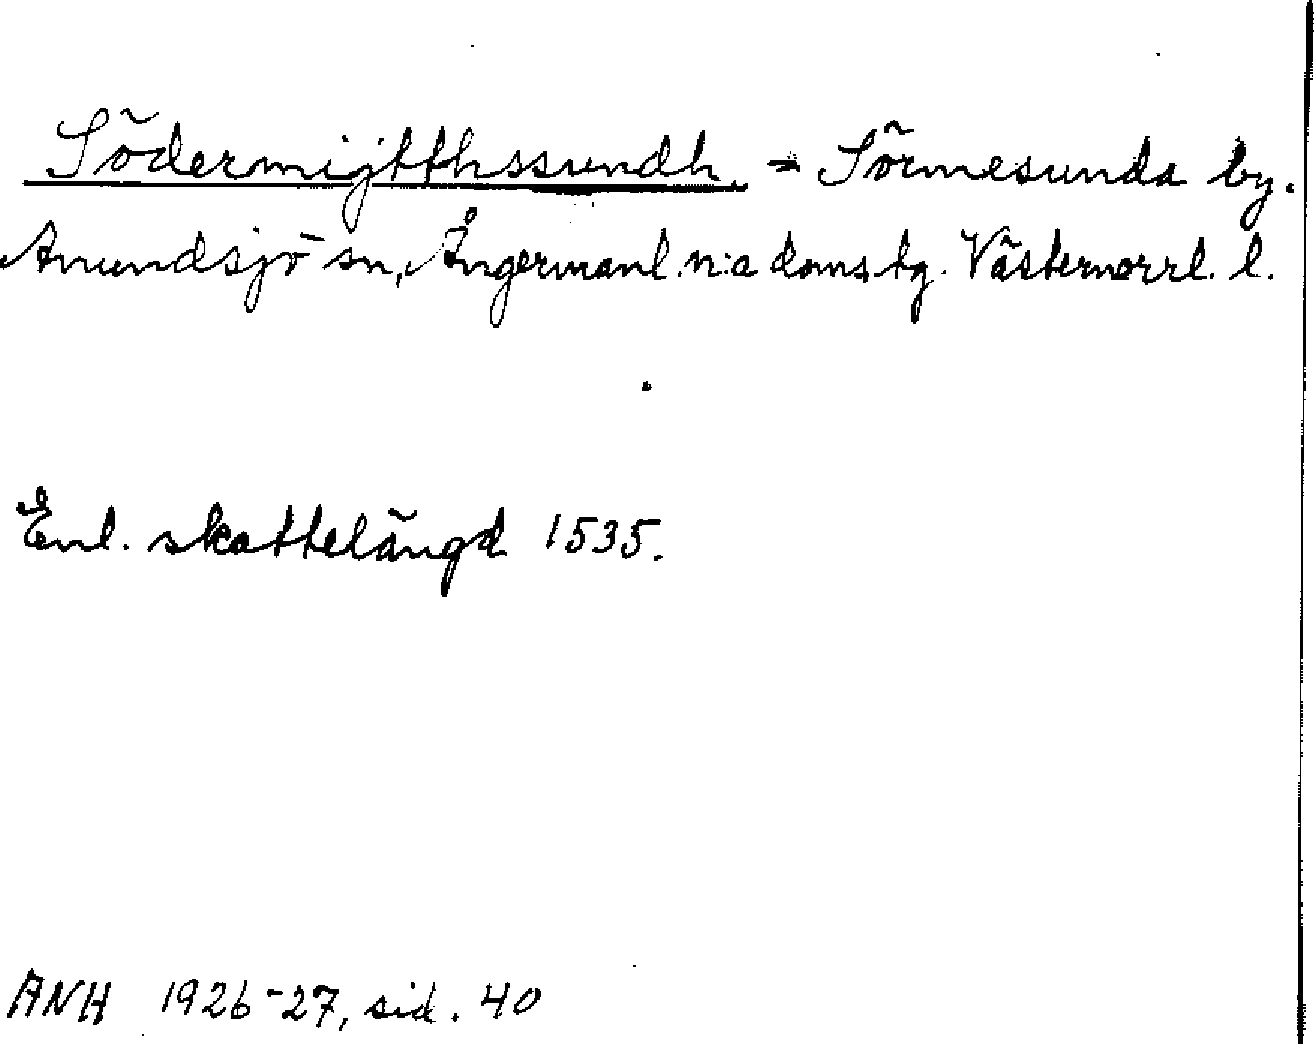 Södermijtthssundh. = Sörmesunda by.
Anundsjö sn, Ångermanl. n:a doms.tg. Västernorrl. l.
Enl. skattelängd 1535.
ANH 1926-27, sid. 40